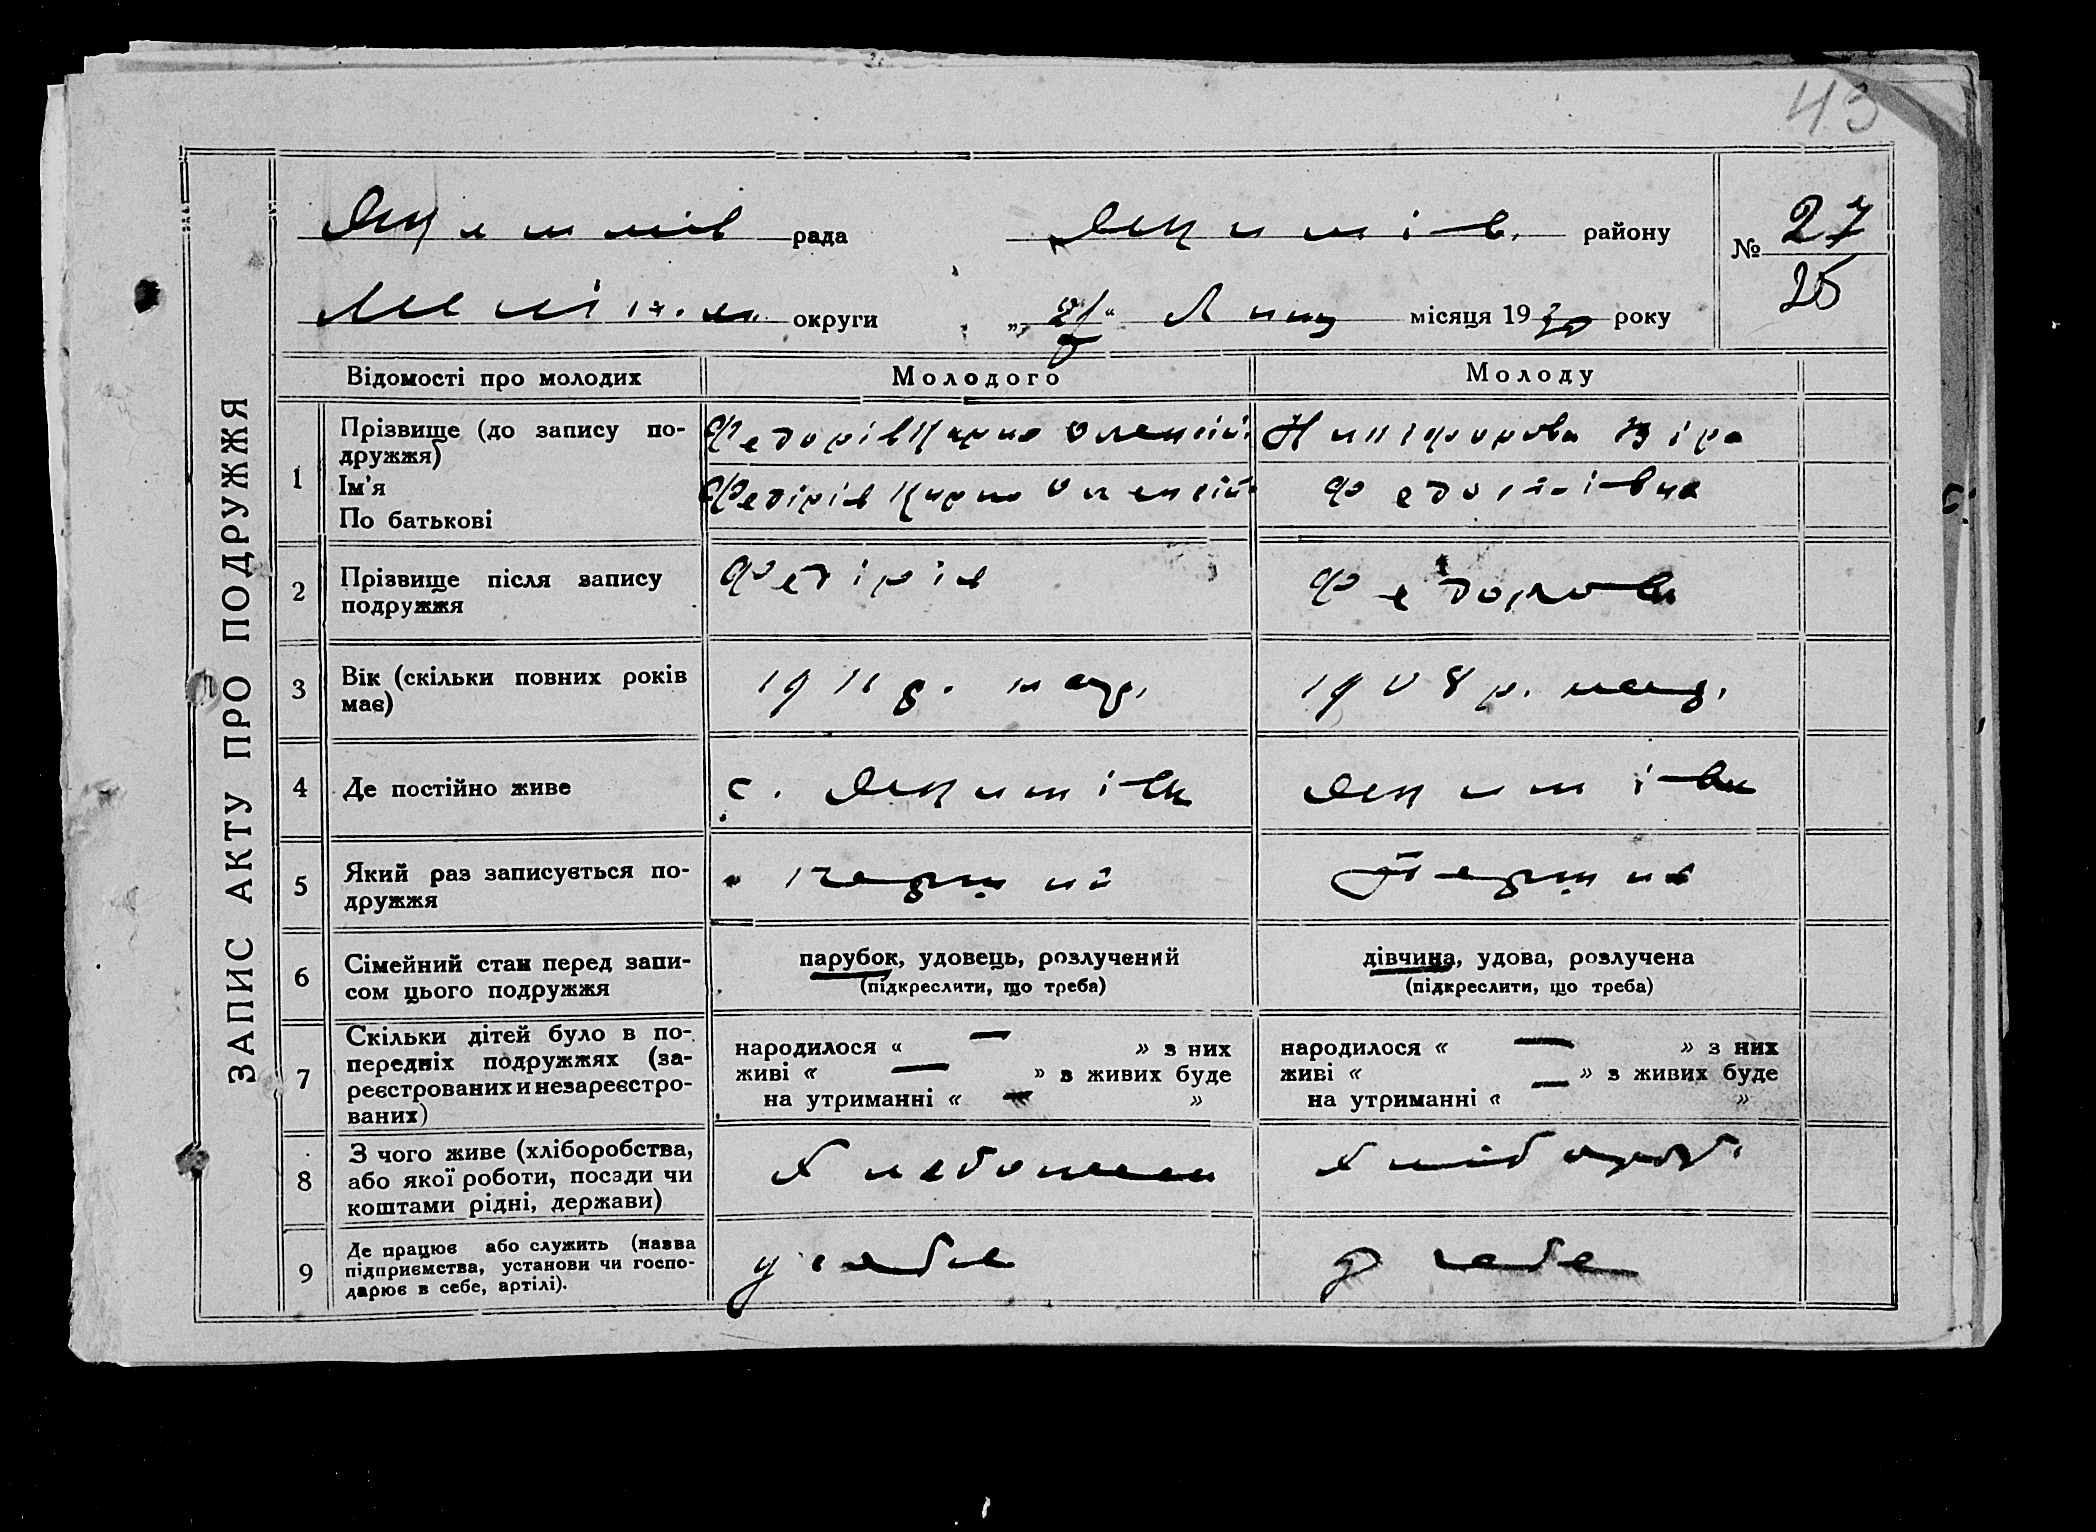 43
ЗАПИС АКТУ ПРО ПОДРУЖЖЯ
Якимів рада Якимів. району
Меліт. округи „ “ Липц місяця 1930 року
№ 27
25
Відомості про молодих Молодого Молоду
1 Прізвище (до запису по-
дружжя)
Ім'я
По батькові
Федорів Кирило Олексій Никіфорова Віра
Федірів Кирило Олексій Федосіївна
2 Прізвище після запису
подружжя
Федірів Федорова
3 Вік (скільки повних років
має)
1911 р. нар. 1908 р. нар.
4 Де постійно живе с. Якимівка Якимівка
5 Який раз записується по-
дружжя
перший Перший
6 Сімейний стан перед запи-
сом цього подружжя
парубок, удовець, розлучений
(підкреслити, що треба)
дівчина, удова, розлучена
(підкреслити, що треба)
7 Скільки дітей було в по-
передніх подружжях (за-
реєстрованих и незареєстро-
ваних)
народилося « — » з них
живі « — » з живих буде
на утриманні « — »
народилося « — » з них
живі « — » з живих буде
на утриманні « »
8 З чого живе (хліборобства,
або якої роботи, посади чи
коштами рідні, держави)
Хлібороб.
9 Де працює або служить (назва
підприємства, установи чи госпо-
дарює в себе, артілі).
у себе у себе